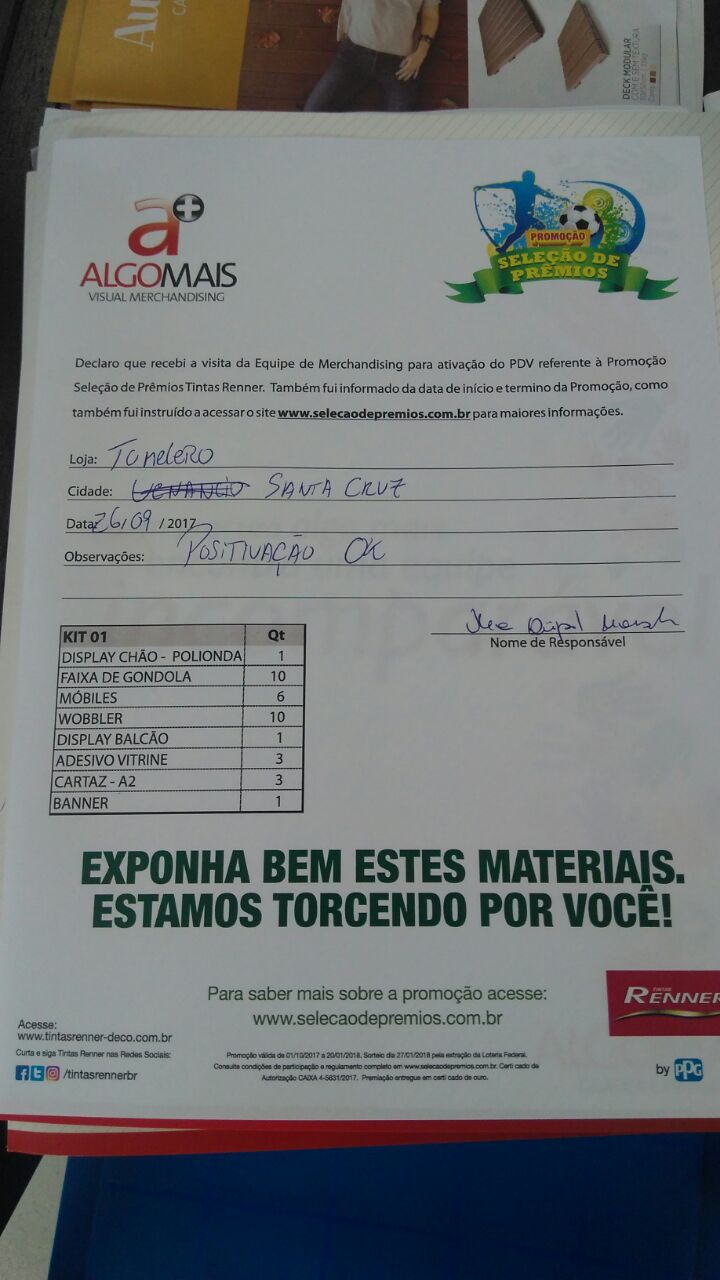 Au
CA
DECK MODULAR
COM E SEM TEXTURA
a+
ALGOMAIS
VISUAL MERCHANDISING
PROMOÇÃO
SELEÇÃO DE
PRÊMIOS
Declaro que recebi a visita da Equipe de Merchandising para ativação do PDV referente à Promoção
Seleção de Prêmios Tintas Renner. Também fui informado da data de início e termino da Promoção, como
também fui instruído a acessar o site www.selecaodepremios.com.br para maiores informações.
Loja: Tumelero
Cidade: Venancio SANTA CRUZ
Data: 26/09 / 2017
Observações: POSITIVAÇÃO OK
Nome de Responsável
KIT 01 Qt
DISPLAY CHÃO - POLIONDA 1
FAIXA DE GONDOLA 10
MÓBILES 6
WOBBLER 10
DISPLAY BALCÃO 1
ADESIVO VITRINE 3
CARTAZ - A2 3
BANNER 1
EXPONHA BEM ESTES MATERIAIS.
ESTAMOS TORCENDO POR VOCÊ!
Para saber mais sobre a promoção acesse:
www.selecaodepremios.com.br
TINTAS
RENNER
by PPG
Acesse:
www.tintasrenner-deco.com.br
Curta e siga Tintas Renner nas Redes Sociais:
/tintasrennerbr
Promoção válida de 01/10/2017 a 20/01/2018. Sorteio dia 27/01/2018 pela extração da Loteria Federal.
Consulte condições de participação e regulamento completo em www.selecaodepremios.com.br. Certi cado de
Autorização CAIXA 4-5631/2017. Premiação entregue em certi cado de ouro.